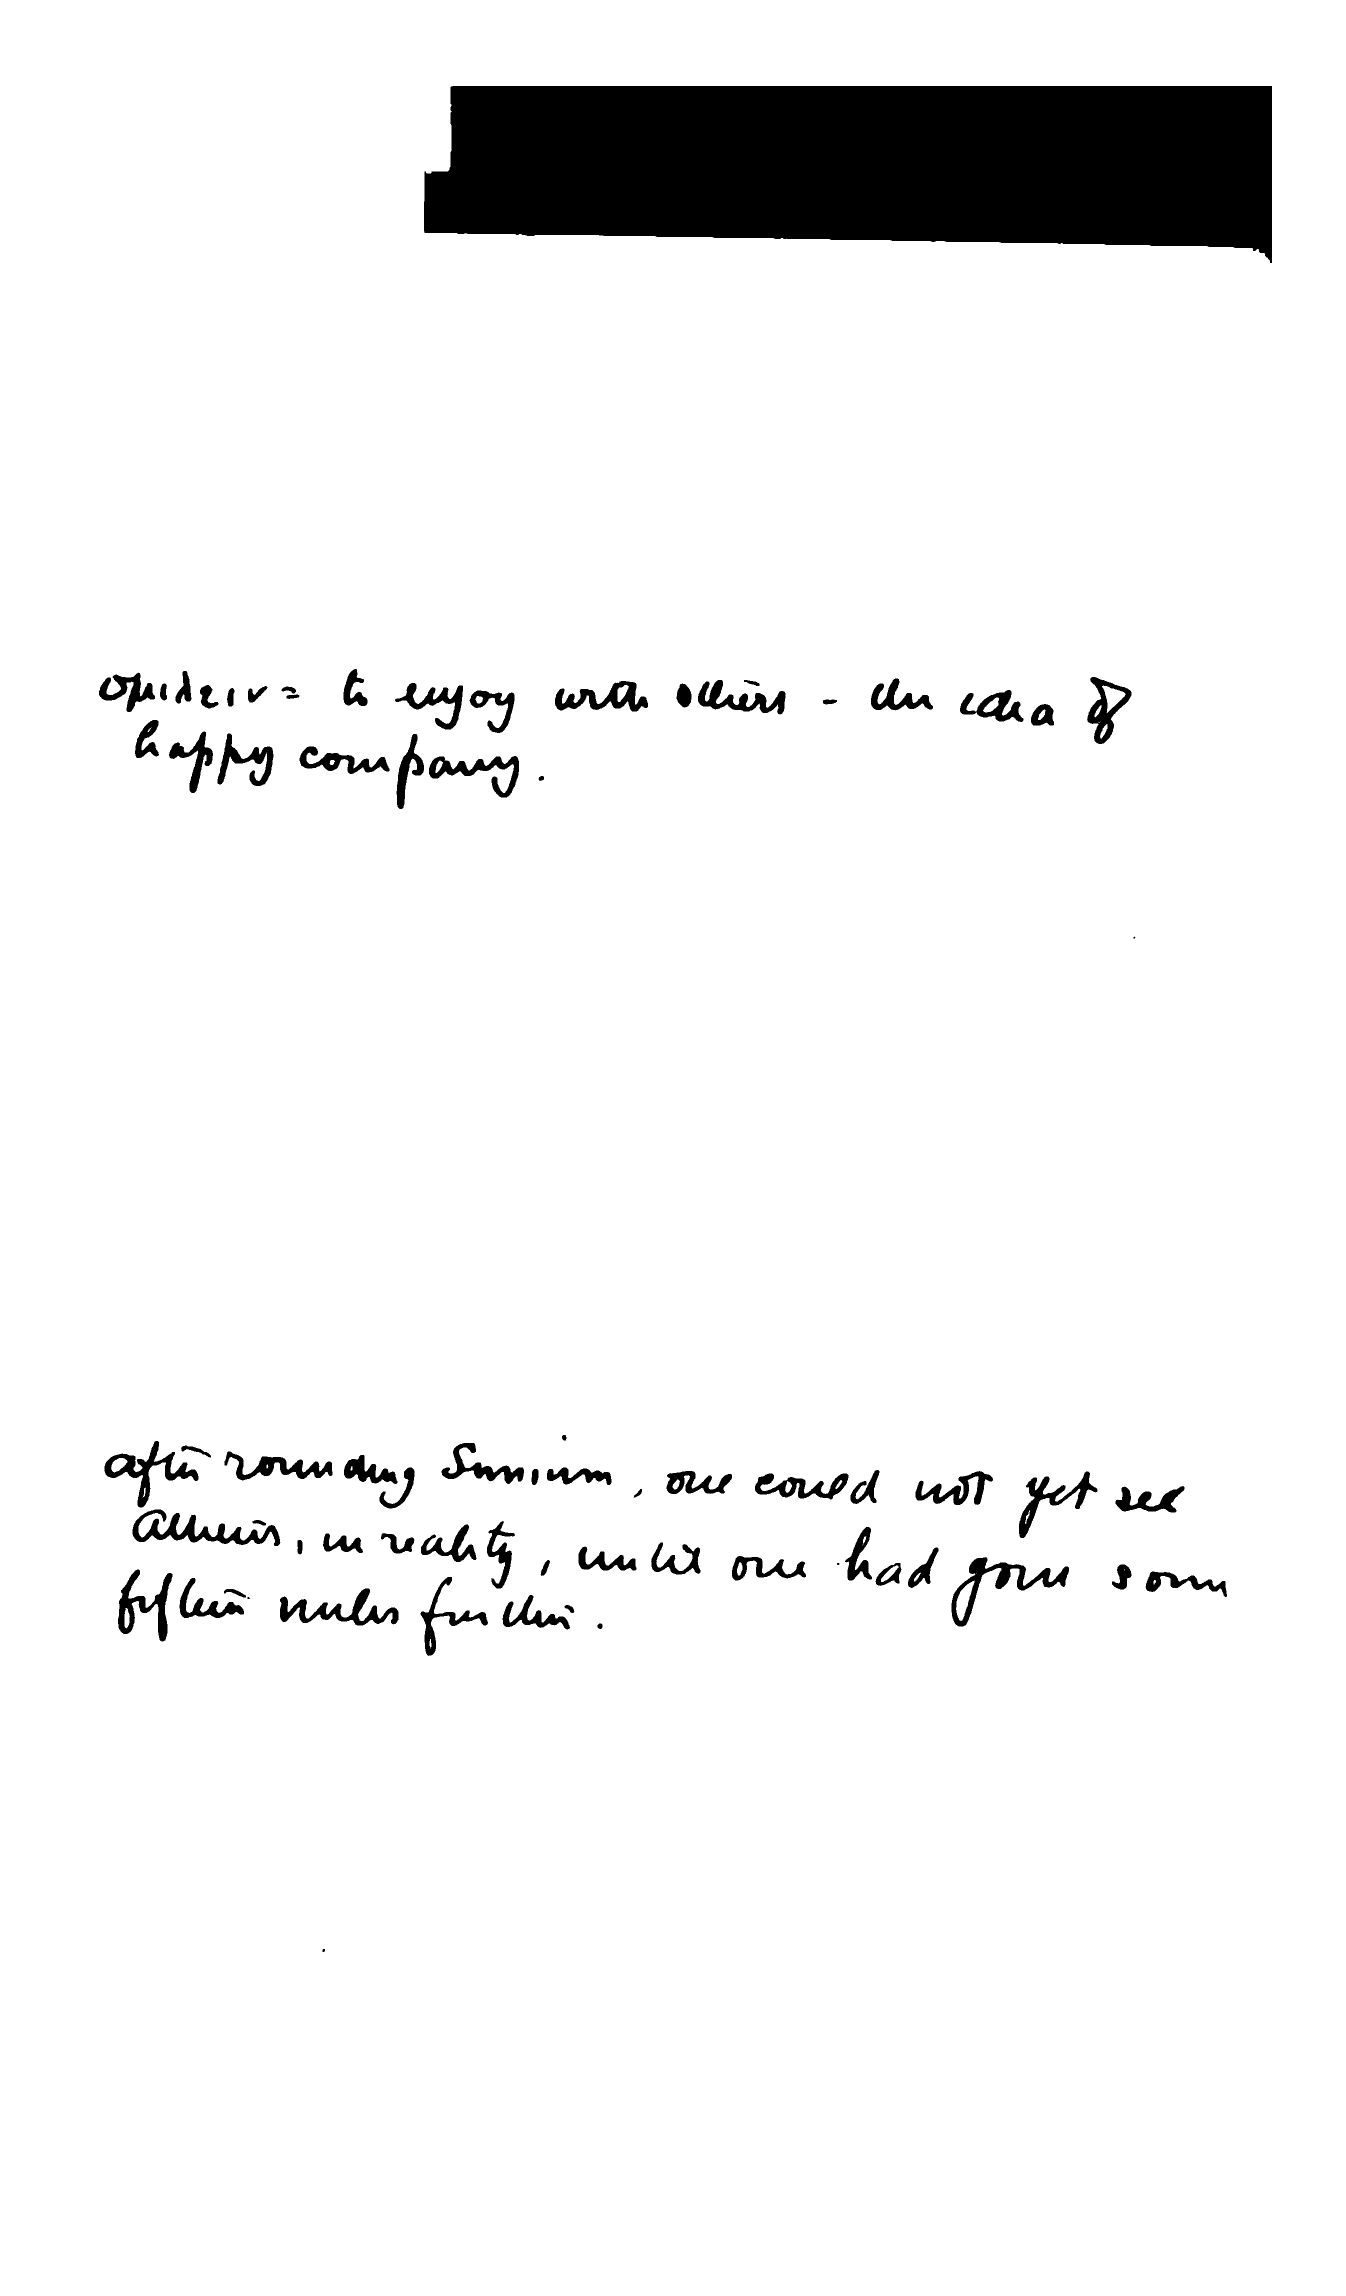 ομιλειν = to enjoy with others - the idea of
happy company.
after rounding Sunium, one could not yet see
Athens, in reality, until one had gone some
fifteen miles further.